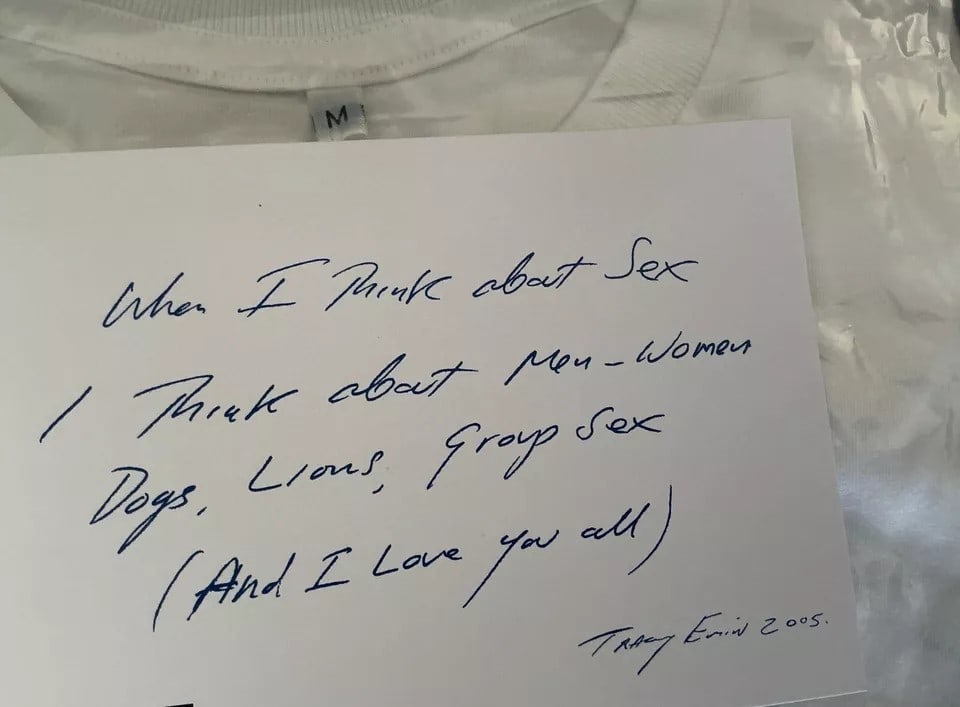 M
When I Think about Sex
I Think about Men - Women
Dogs, Lions, Group Sex
(And I Love you all)
Tracey Emin 2005.